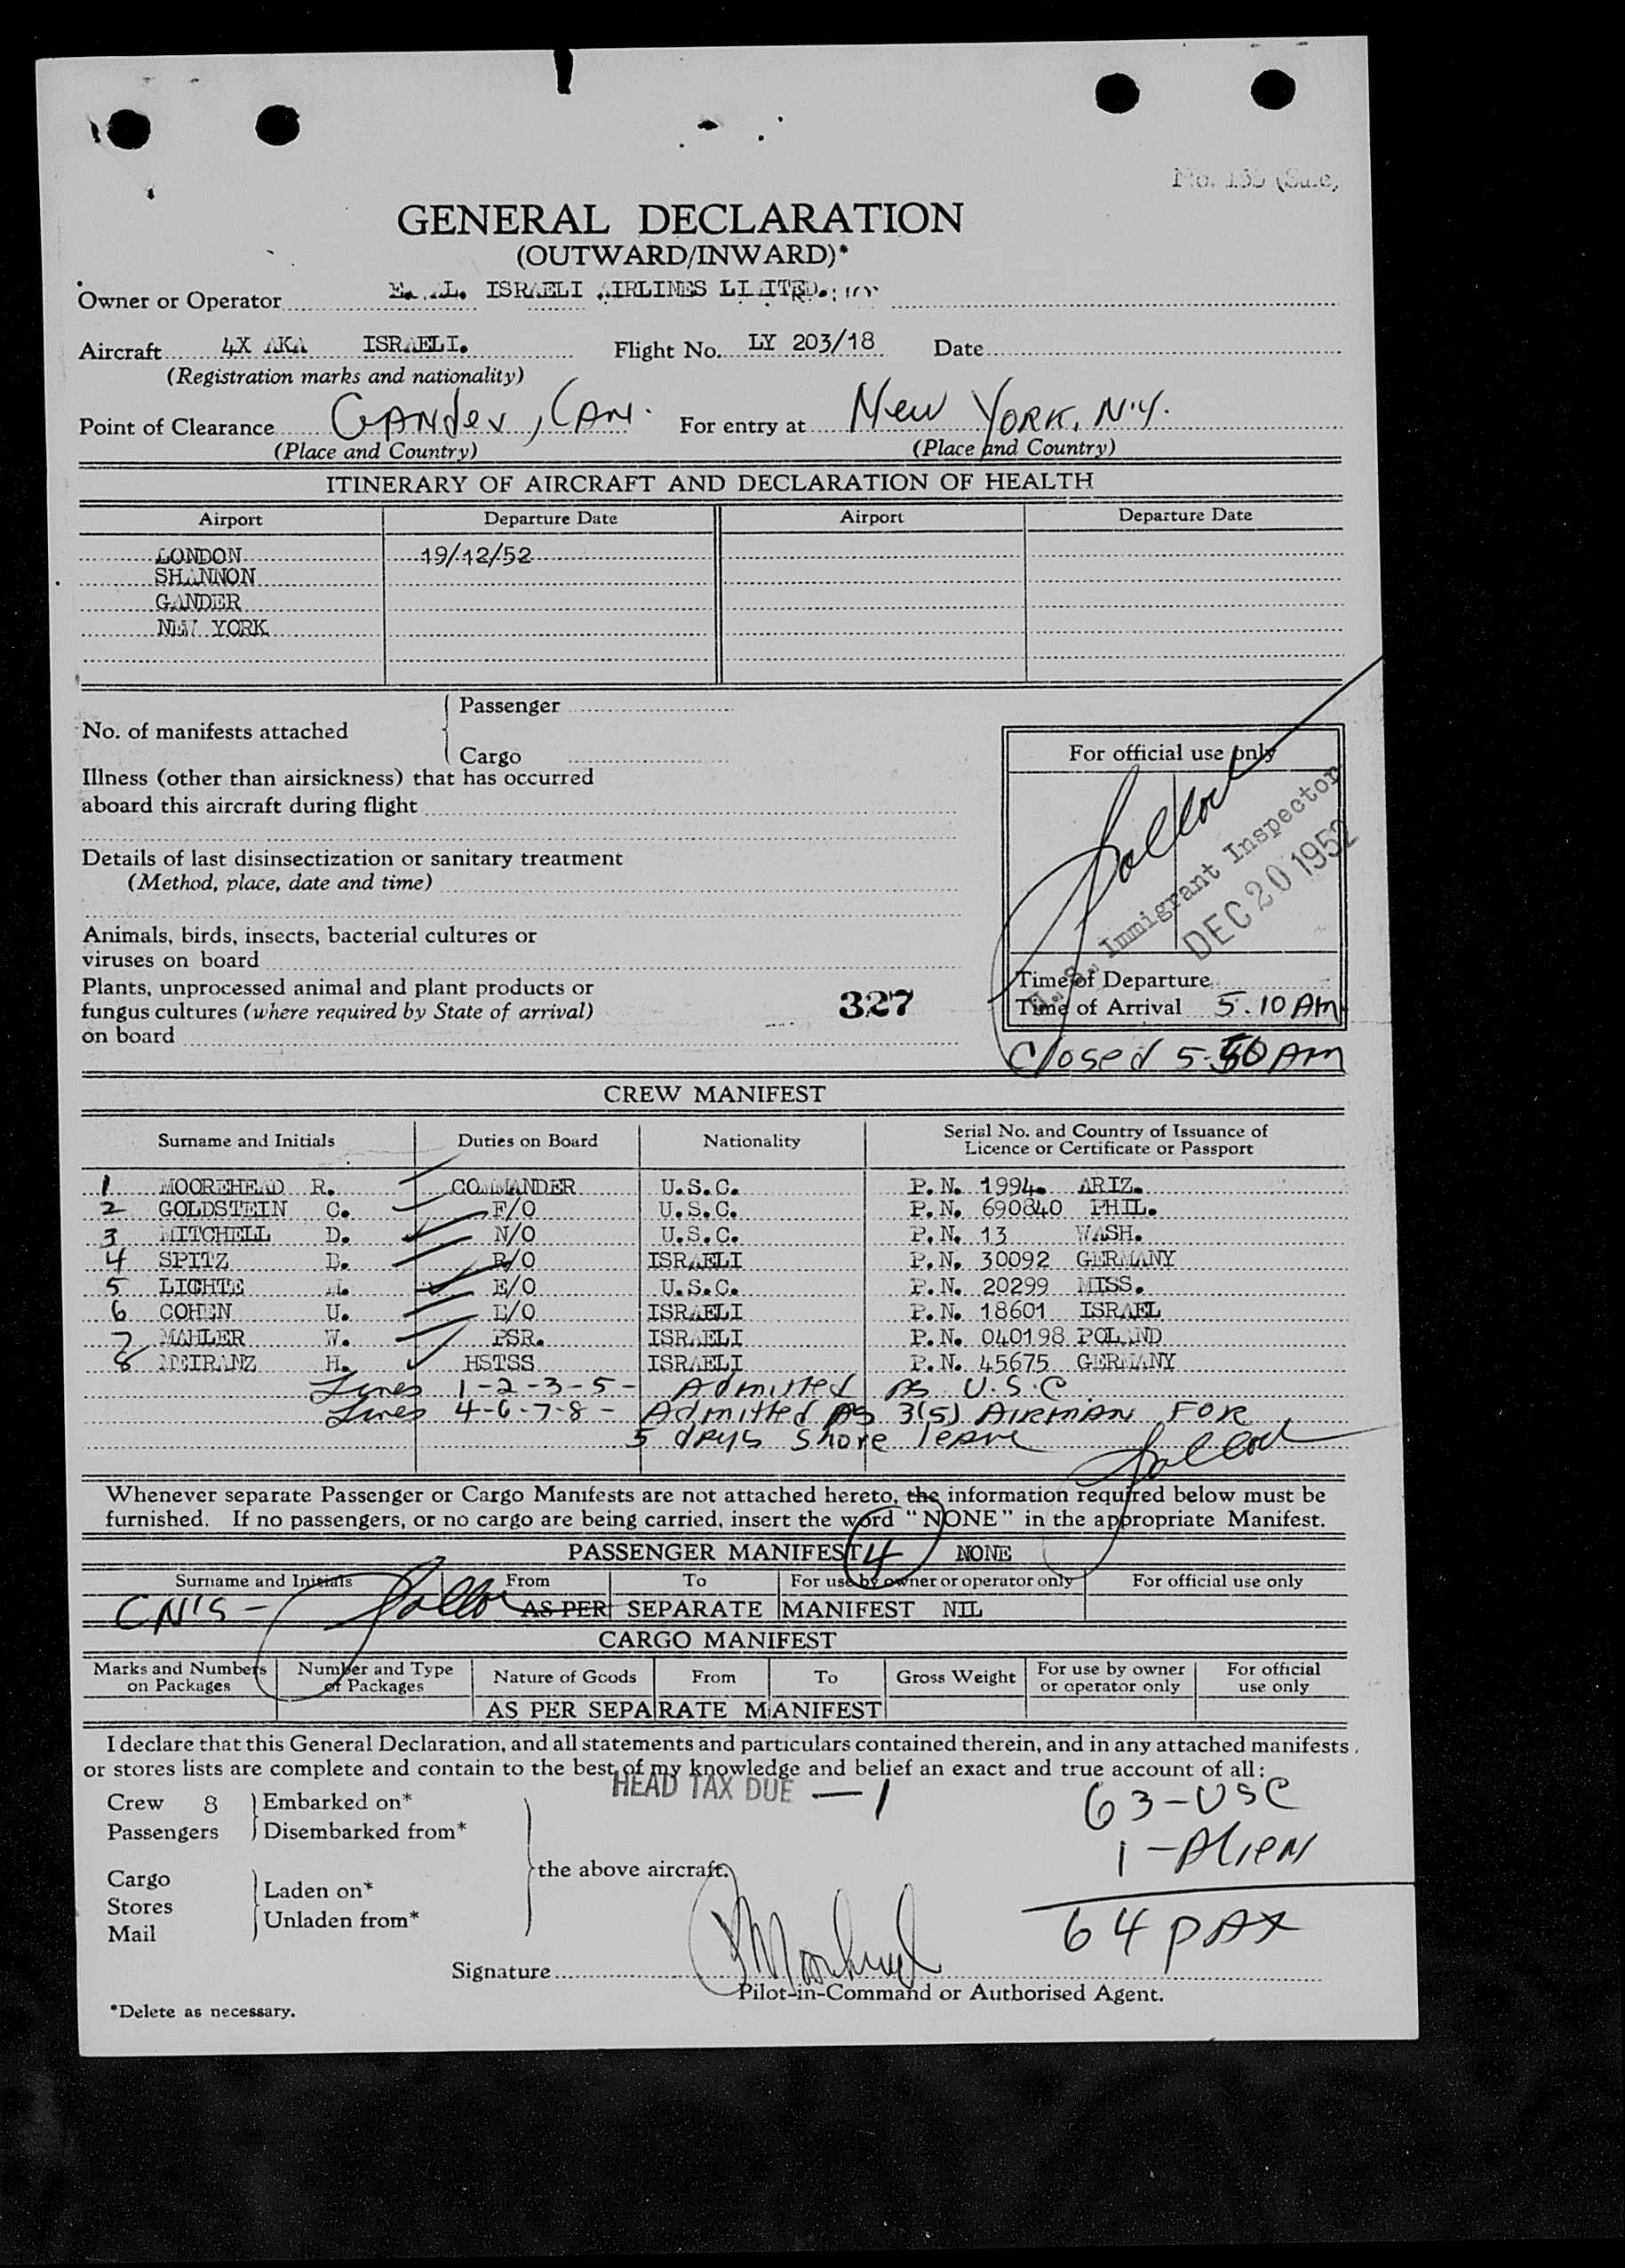 GENERAL DECLARATION
(OUTWARD/INWARD)*
Owner or Operator ISRAELI AIRLINES
Aircraft 4X AKA ISRAELI. Flight No. LY 203/18 Date
(Registration marks and nationality)
Point of Clearance Gander, CAN. For entry at New York, N.Y.
(Place and Country) (Place and Country)
ITINERARY OF AIRCRAFT AND DECLARATION OF HEALTH
Airport Departure Date Airport Departure Date
LONDON 19/12/52
SHANNON
GANDER
NEW YORK
Passenger
No. of manifests attached
Cargo
Illness (other than airsickness) that has occurred
aboard this aircraft during flight
Details of last disinsectization or sanitary treatment
(Method, place, date and time)
Animals, birds, insects, bacterial cultures or
viruses on board
Plants, unprocessed animal and plant products or
fungus cultures (where required by State of arrival)
on board
327
For official use only
U.S. Immigrant Inspector
DEC 20 1952
Time of Departure
Time of Arrival 5.10 AM
Closed 5-50 AM
CREW MANIFEST
Surname and Initials Duties on Board Nationality Serial No. and Country of Issuance of Licence or Certificate or Passport
1 MOOREHEAD R. COMMANDER U.S.C. P.N. 1994. ARIZ.
2 GOLDSTEIN C. F/O U.S.C. P.N. 690840 PHIL.
3 MITCHELL D. N/O U.S.C. P.N. 13 WASH.
4 SPITZ R/O ISRAELI P.N. 30092 GERMANY
5 LICHTE E/O U.S.C. P.N. 20299 MISS.
6 COHEN U. E/O ISRAELI P.N. 18601 ISRAEL
7 MAHLER W. PSR. ISRAELI P.N. 040198 POLAND
8 MEIRANZ H. HSTSS ISRAELI P.N. 45675 GERMANY
Lines 1-2-3-5- Admitted AS U.S.C
Lines 4-6-7-8- Admitted AS 3(5) AIRMAN FOR
5 days shore leave
Whenever separate Passenger or Cargo Manifests are not attached hereto, the information required below must be
furnished. If no passengers, or no cargo are being carried, insert the word "NONE" in the appropriate Manifest.
PASSENGER MANIFEST 4 NONE
Surname and Initials From To For use by owner or operator only For official use only
CN'S - AS PER SEPARATE MANIFEST NIL
CARGO MANIFEST
Marks and Numbers on Packages Number and Type of Packages Nature of Goods From To Gross Weight For use by owner or operator only For official use only
AS PER SEPARATE MANIFEST
I declare that this General Declaration, and all statements and particulars contained therein, and in any attached manifests,
or stores lists are complete and contain to the best of my knowledge and belief an exact and true account of all:
HEAD TAX DUE - 1
Crew 8 Embarked on*
Passengers Disembarked from*
the above aircraft.
Cargo
Stores
Mail
Laden on*
Unladen from*
63-USC
1-Alien
64 PAX
Signature
Pilot-in-Command or Authorised Agent.
*Delete as necessary.